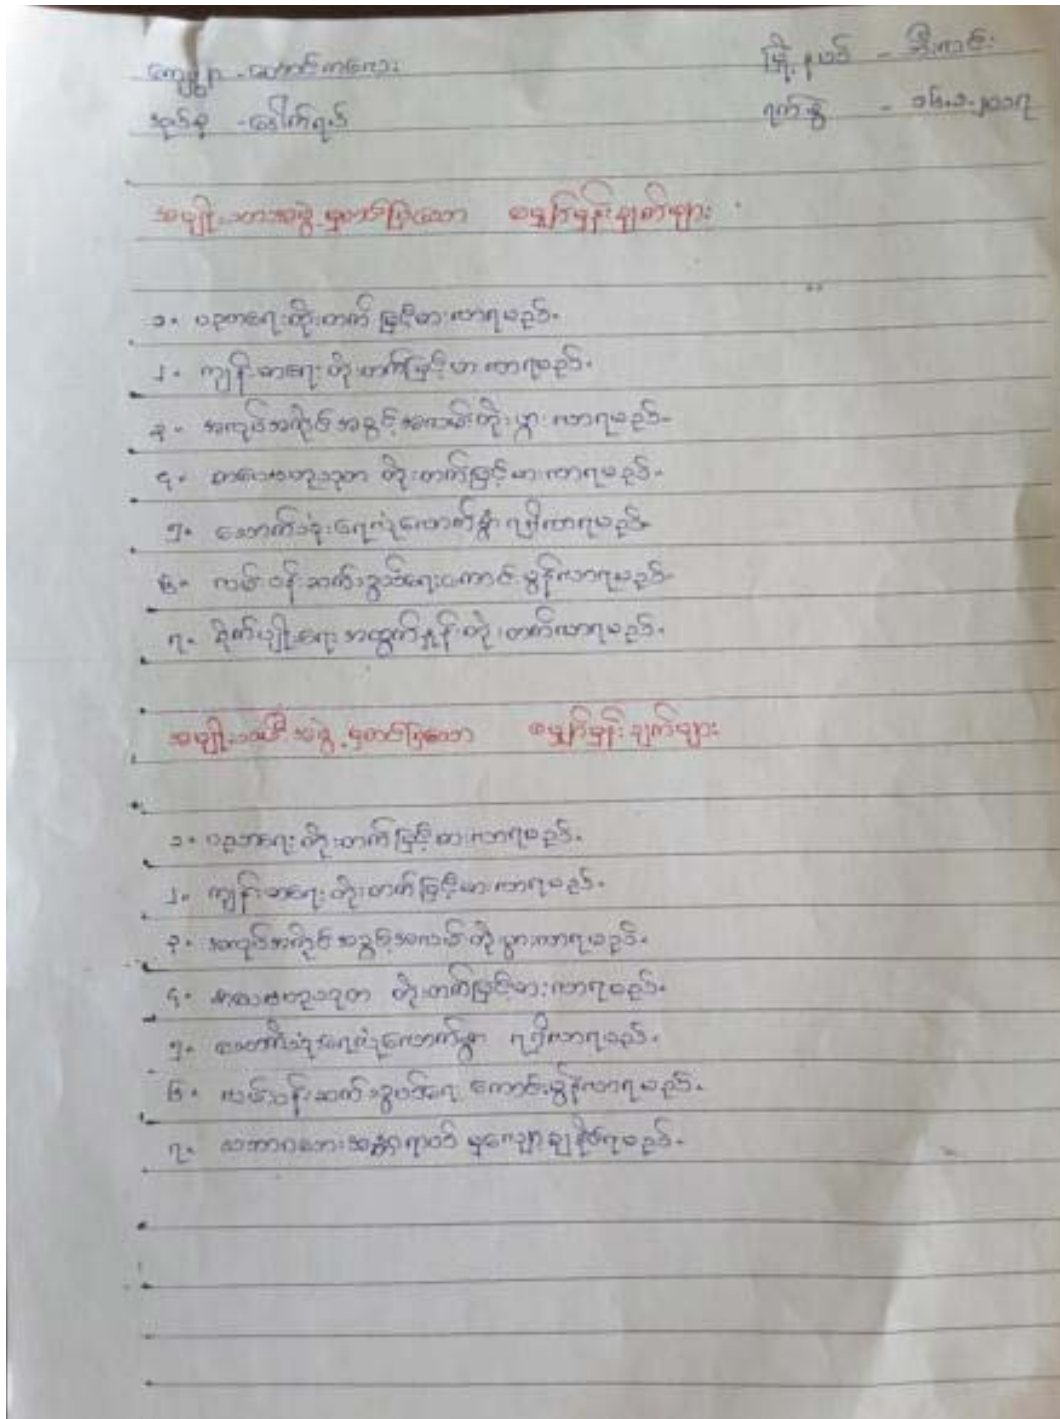 ကျေးရွာ - တောင်ကလေး မြို့နယ် -
အုပ်စု - ရက်စွဲ - ၁၆.၁.၂၀၁၇
အမျိုးသားအဖွဲ့မှတင်ပြသော မျှော်မှန်းချက်များ
၁။ ပညာရေးတိုးတက်မြင့်မားလာရမည်။
၂။ ကျန်းမာရေးတိုးတက်မြင့်မားလာရမည်။
၃။ အလုပ်အကိုင်အခွင့်အလမ်းတိုးပွားလာရမည်။
၄။ တိုးတက်မြင့်မားလာရမည်။
၅။ သောက်သုံးရေလုံလောက်စွာရရှိလာရမည်။
၆။ လမ်းပန်းဆက်သွယ်ရေးကောင်းမွန်လာရမည်။
၇။ စိုက်ပျိုးရေးအထွက်နှုန်းတိုးတက်လာရမည်။
အမျိုးသမီးအဖွဲ့မှတင်ပြသော မျှော်မှန်းချက်များ
၁။ ပညာရေးတိုးတက်မြင့်မားလာရမည်။
၂။ ကျန်းမာရေးတိုးတက်မြင့်မားလာရမည်။
၃။ အလုပ်အကိုင်အခွင့်အလမ်းတိုးပွားလာရမည်။
၄။ တိုးတက်မြင့်မားလာရမည်။
၅။ သောက်သုံးရေလုံလောက်စွာ ရရှိလာရမည်။
၆။ လမ်းပန်းဆက်သွယ်ရေး ကောင်းမွန်လာရမည်။
၇။ သဘာဝဘေးအန္တရာယ် မှလျော့ချနိုင်ရမည်။